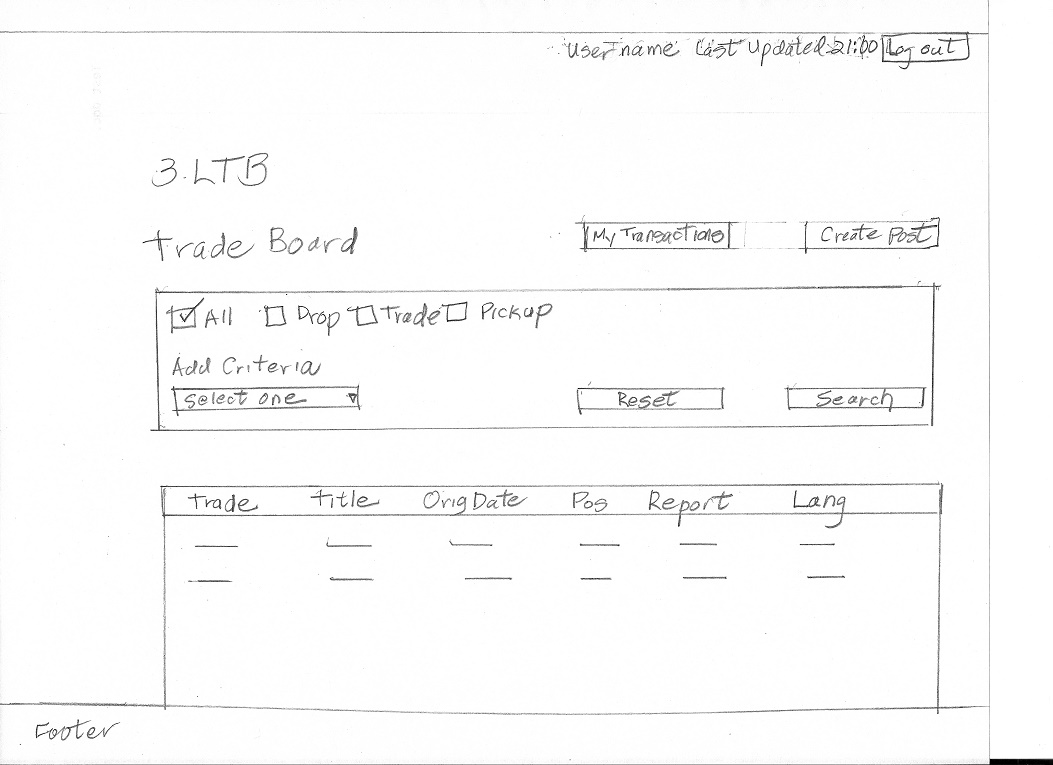 Username Last Updated 21:00 Log out
3.LTB
Trade Board
My Transactions Create Post
All Drop Trade Pickup
Add Criteria
Select one
Reset Search
Trade Title Orig Date Pos Report Lang
Footer